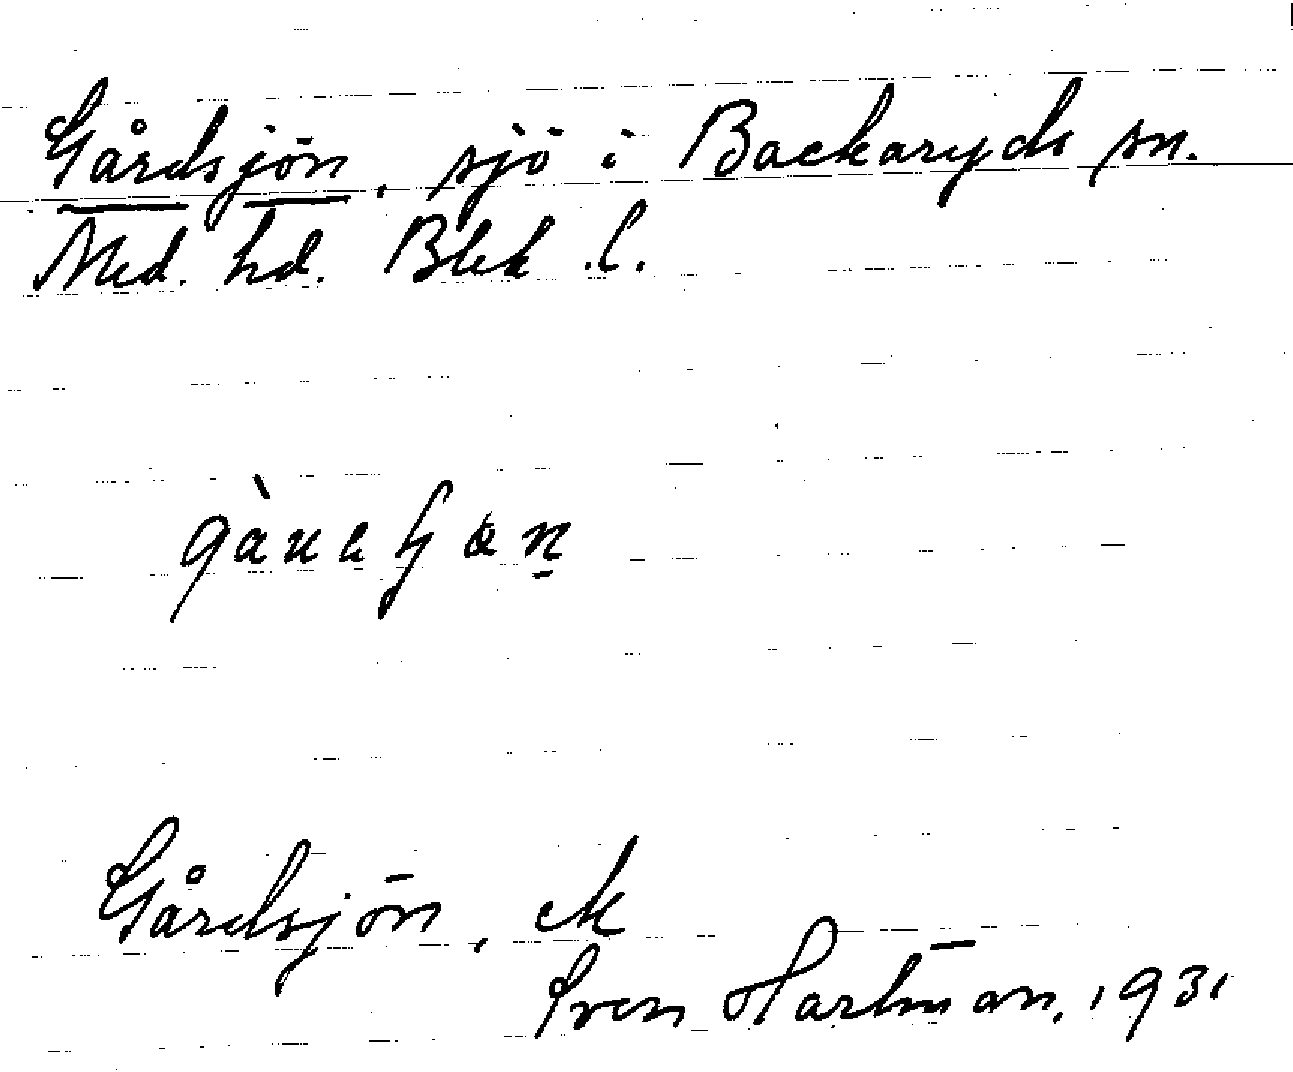 Gårdsjön, sjö i Backaryds sn.
Med. hd. Blek. l.
Gårdsjön, ek
Sven Hartman, 1931